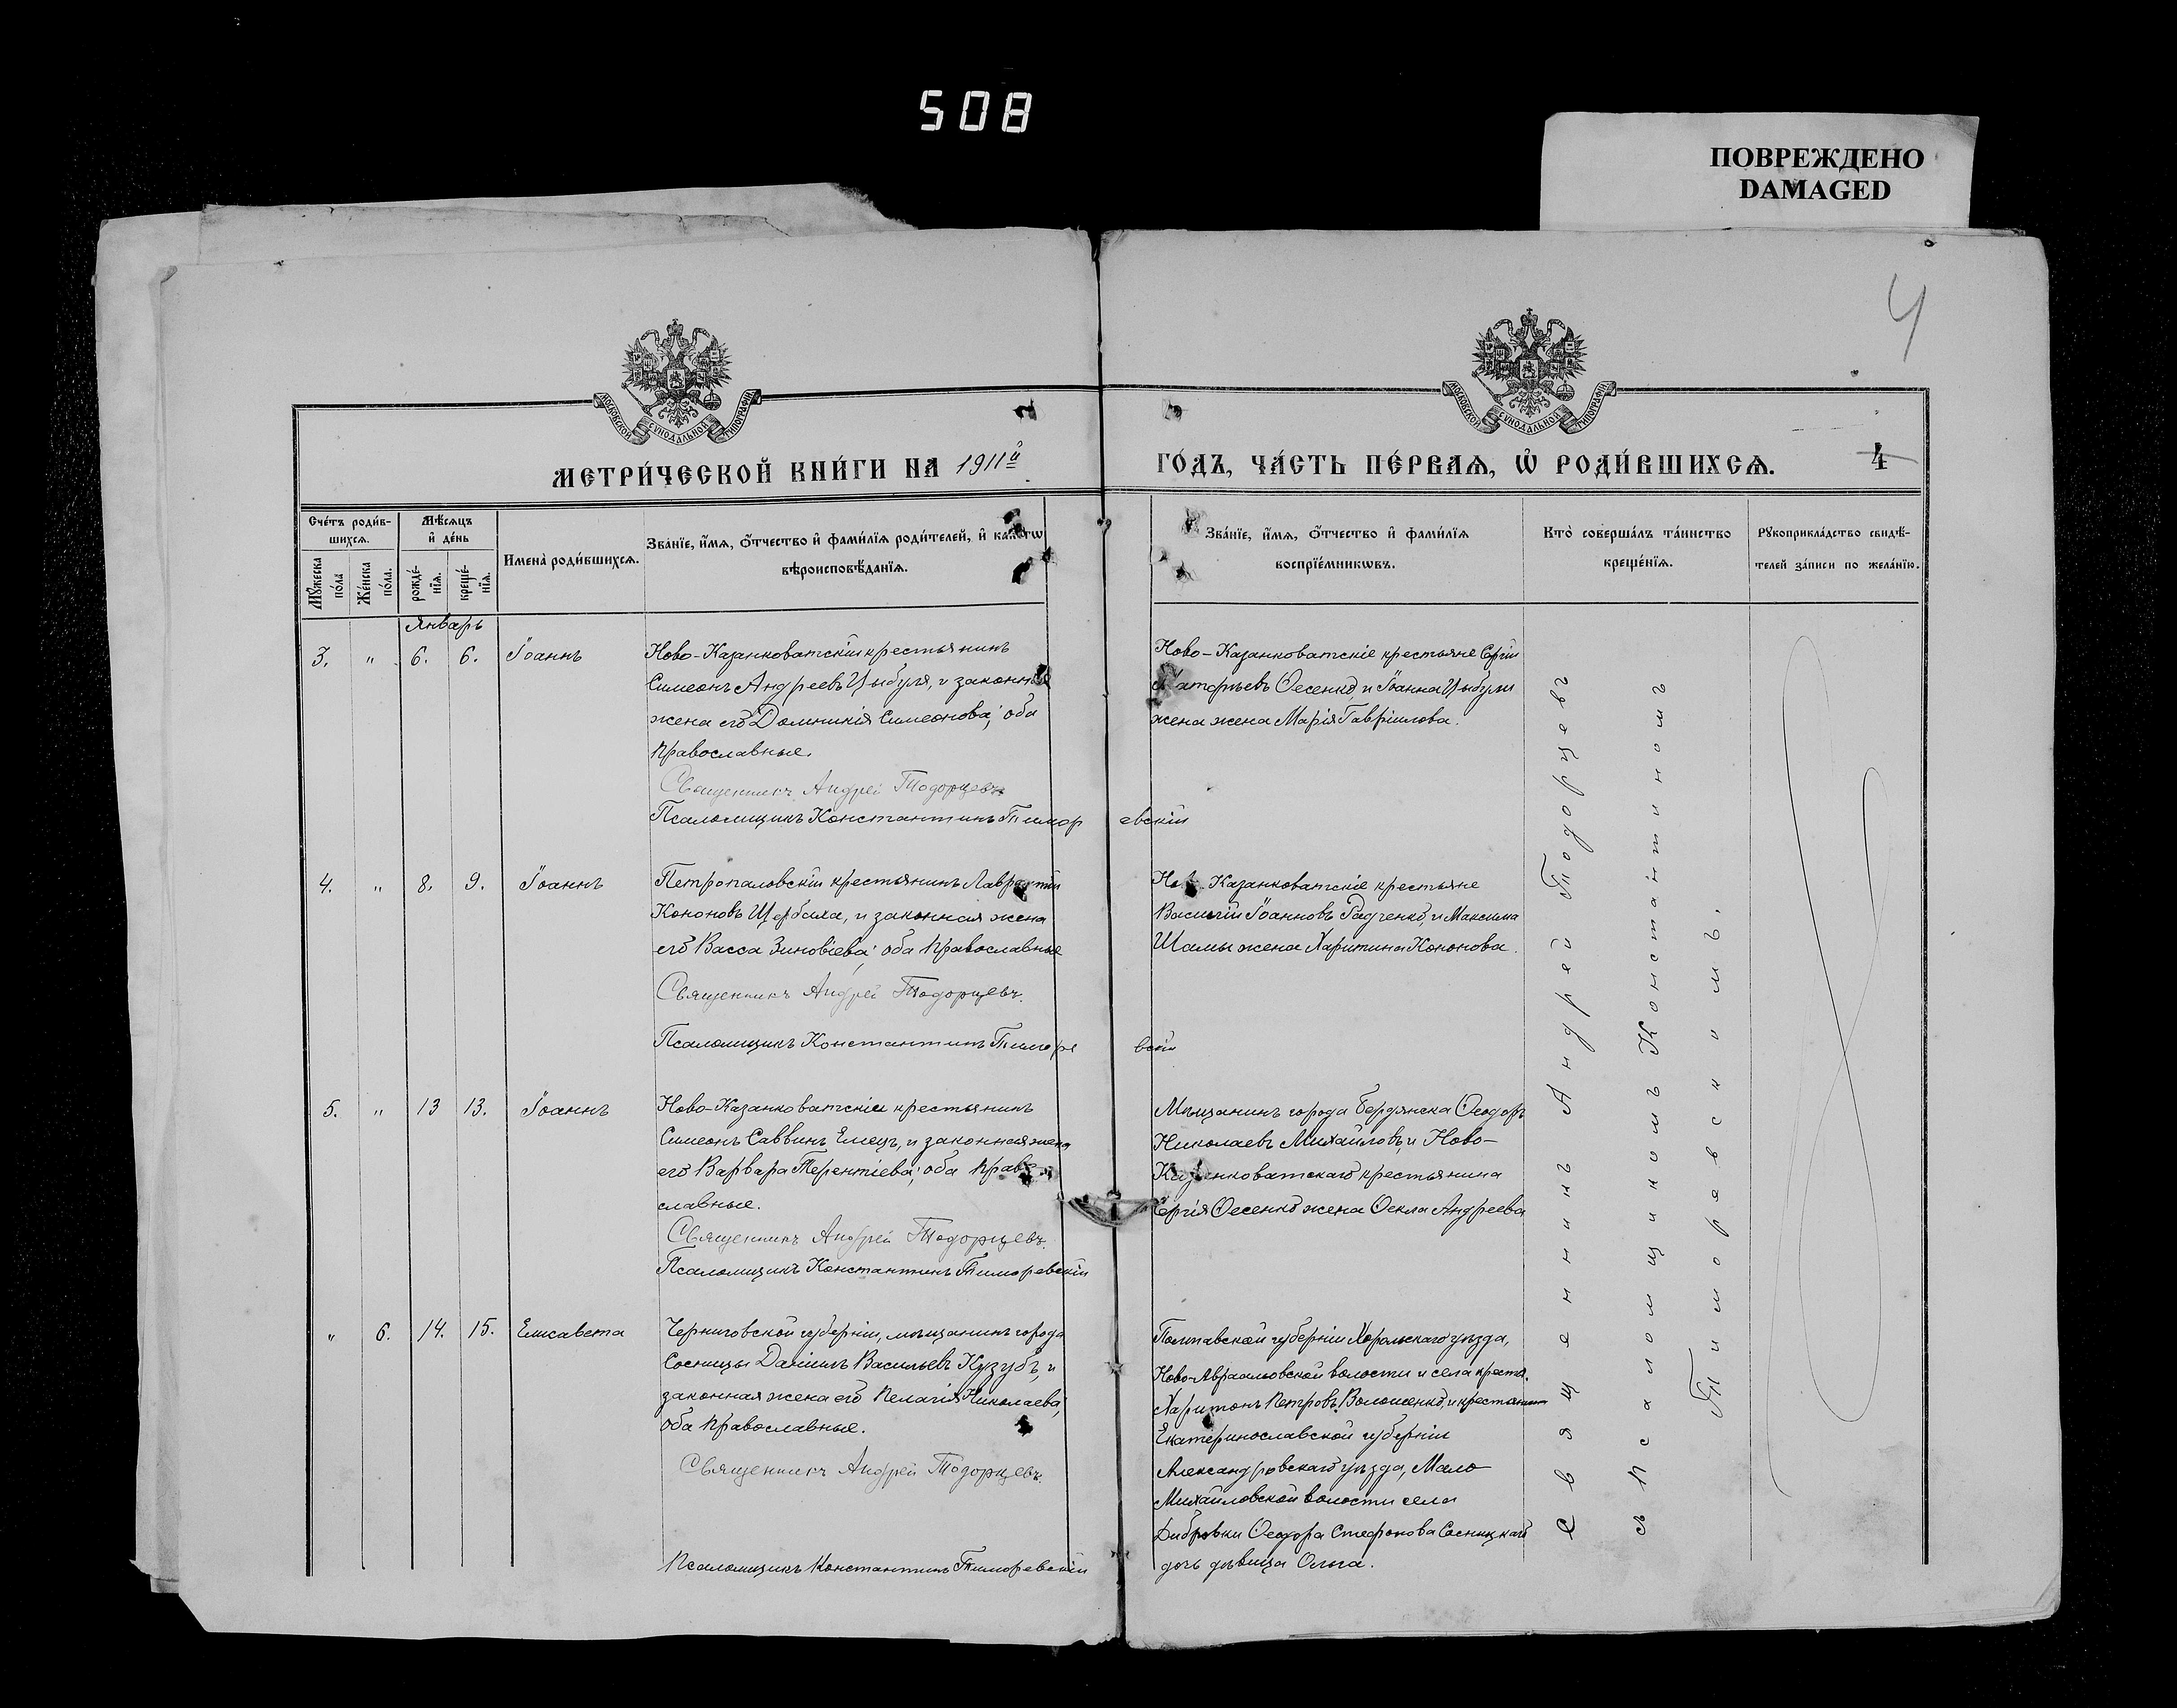 508
ПОВРЕЖДЕНО
DAMAGED
4
МОСКОВСКОЙ СѴНОДАЛЬНОЙ ТИПОГРАФІИ
МОСКОВСКОЙ СѴНОДАЛЬНОЙ ТИПОГРАФІИ
МЕТРИ́ЧЕСКОЙ КНИ́ГИ НА 1911й ГО́ДЪ, ЧА́СТЬ ПЕ́РВАѦ, Ѡ҆ РОДИ́ВШИХСѦ. 4
Сче́тъ роди́в-
шихсѧ.
Мꙋ́жеска по́ла
Же́нска по́ла.
Мѣ́сѧцъ
и҆ де́нь
рожде́-нїѧ.
креще́-нїѧ.
Имена̀ роди́вшихсѧ.
Зва́нїе, и҆́мѧ, о҆́тчество и҆ фами́лїѧ роди́телей, и҆ како́гѡ
вѣроисповѣ́данїѧ.
Зва́нїе, и҆́мѧ, о҆́тчество и҆ фами́лїѧ
воспрїе́мникѡвъ.
Кто̀ соверша́лъ та́инство
креще́нїѧ.
Рꙋкоприкла́дство свидѣ́-
телей за́писи по жела́нїю.
Январь
3. " 6. 6. Іоаннъ
Ново-Казанковатскій крестьянинъ
Симеонъ Андреевъ Цыбуля, и законная
жена его Домникія Симеонова; оба
православные.
Священникъ Андрей Тодорцевъ
Псаломщикъ Константинъ Тиморевскій
Ново-Казанковатскіе крестьяне Сергій
Ѳесенко, и Іоанна Цыбули
жена жена Марія Гавріилова.
4. " 8. 9. Іоаннъ
Петропаловскій крестьянинъ Лаврентій
Кононовъ Щербаха, и законная жена
его Васса Зиновіева; оба православные
Священникъ Андрей Тодорцевъ.
Псаломщикъ Константинъ Тиморевскій
Ново-Казанковатскіе крестьяне
Василій Іоанновъ Радченко, и Максима
Шамы жена Харитина Кононова.
5. " 13 13. Іоаннъ
Ново-Казанковатскій крестьянинъ
Симеонъ Саввинъ Емецъ, и законная жена
его Варвара Терентіева; оба право-
славные.
Священникъ Андрей Тодорцевъ.
Псаломщикъ Константинъ Тиморевскій
Мѣщанинъ города Бердянска Ѳеодоръ
Николаевъ Михайловъ, и Ново-
Казанковатскаго крестьянина
Сергія Ѳесенко жена Ѳекла Андреева
" 6. 14. 15. Елисавета
Черниговской губерніи, мѣщанинъ города
Сосницы Даніилъ Васильевъ Кузубъ, и
законная жена его Пелагія Николаева;
оба православные.
Священникъ Андрей Тодорцевъ.
Псаломщикъ Константинъ Тиморевскій
Полтавской губерніи Хорольскаго уѣзда,
Ново-Аврамовской волости и села крест.
Харитонъ Петровъ Волошенко, и крестьянина
Екатеринославской губерніи
Александровскаго уѣзда, Мало
Михайловской волости села
Дибровки Ѳеодора Стефанова Сосницкаго
дочь дѣвица Ольга.
Священникъ Андрей Тодорцевъ
съ псаломщикомъ Константиномъ
Тиморевскимъ.